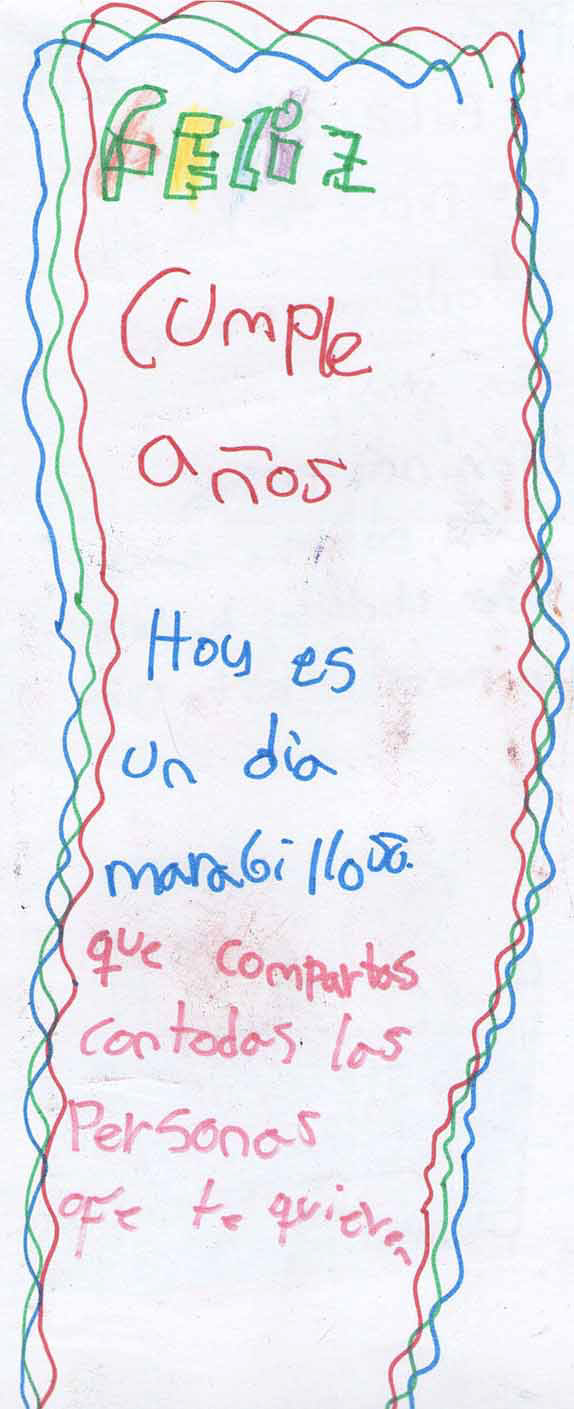 FELiZ
Cumple
años
Hoy es
un dia
marabilloso.
que compartas
con todas las
Personas
que te quieren